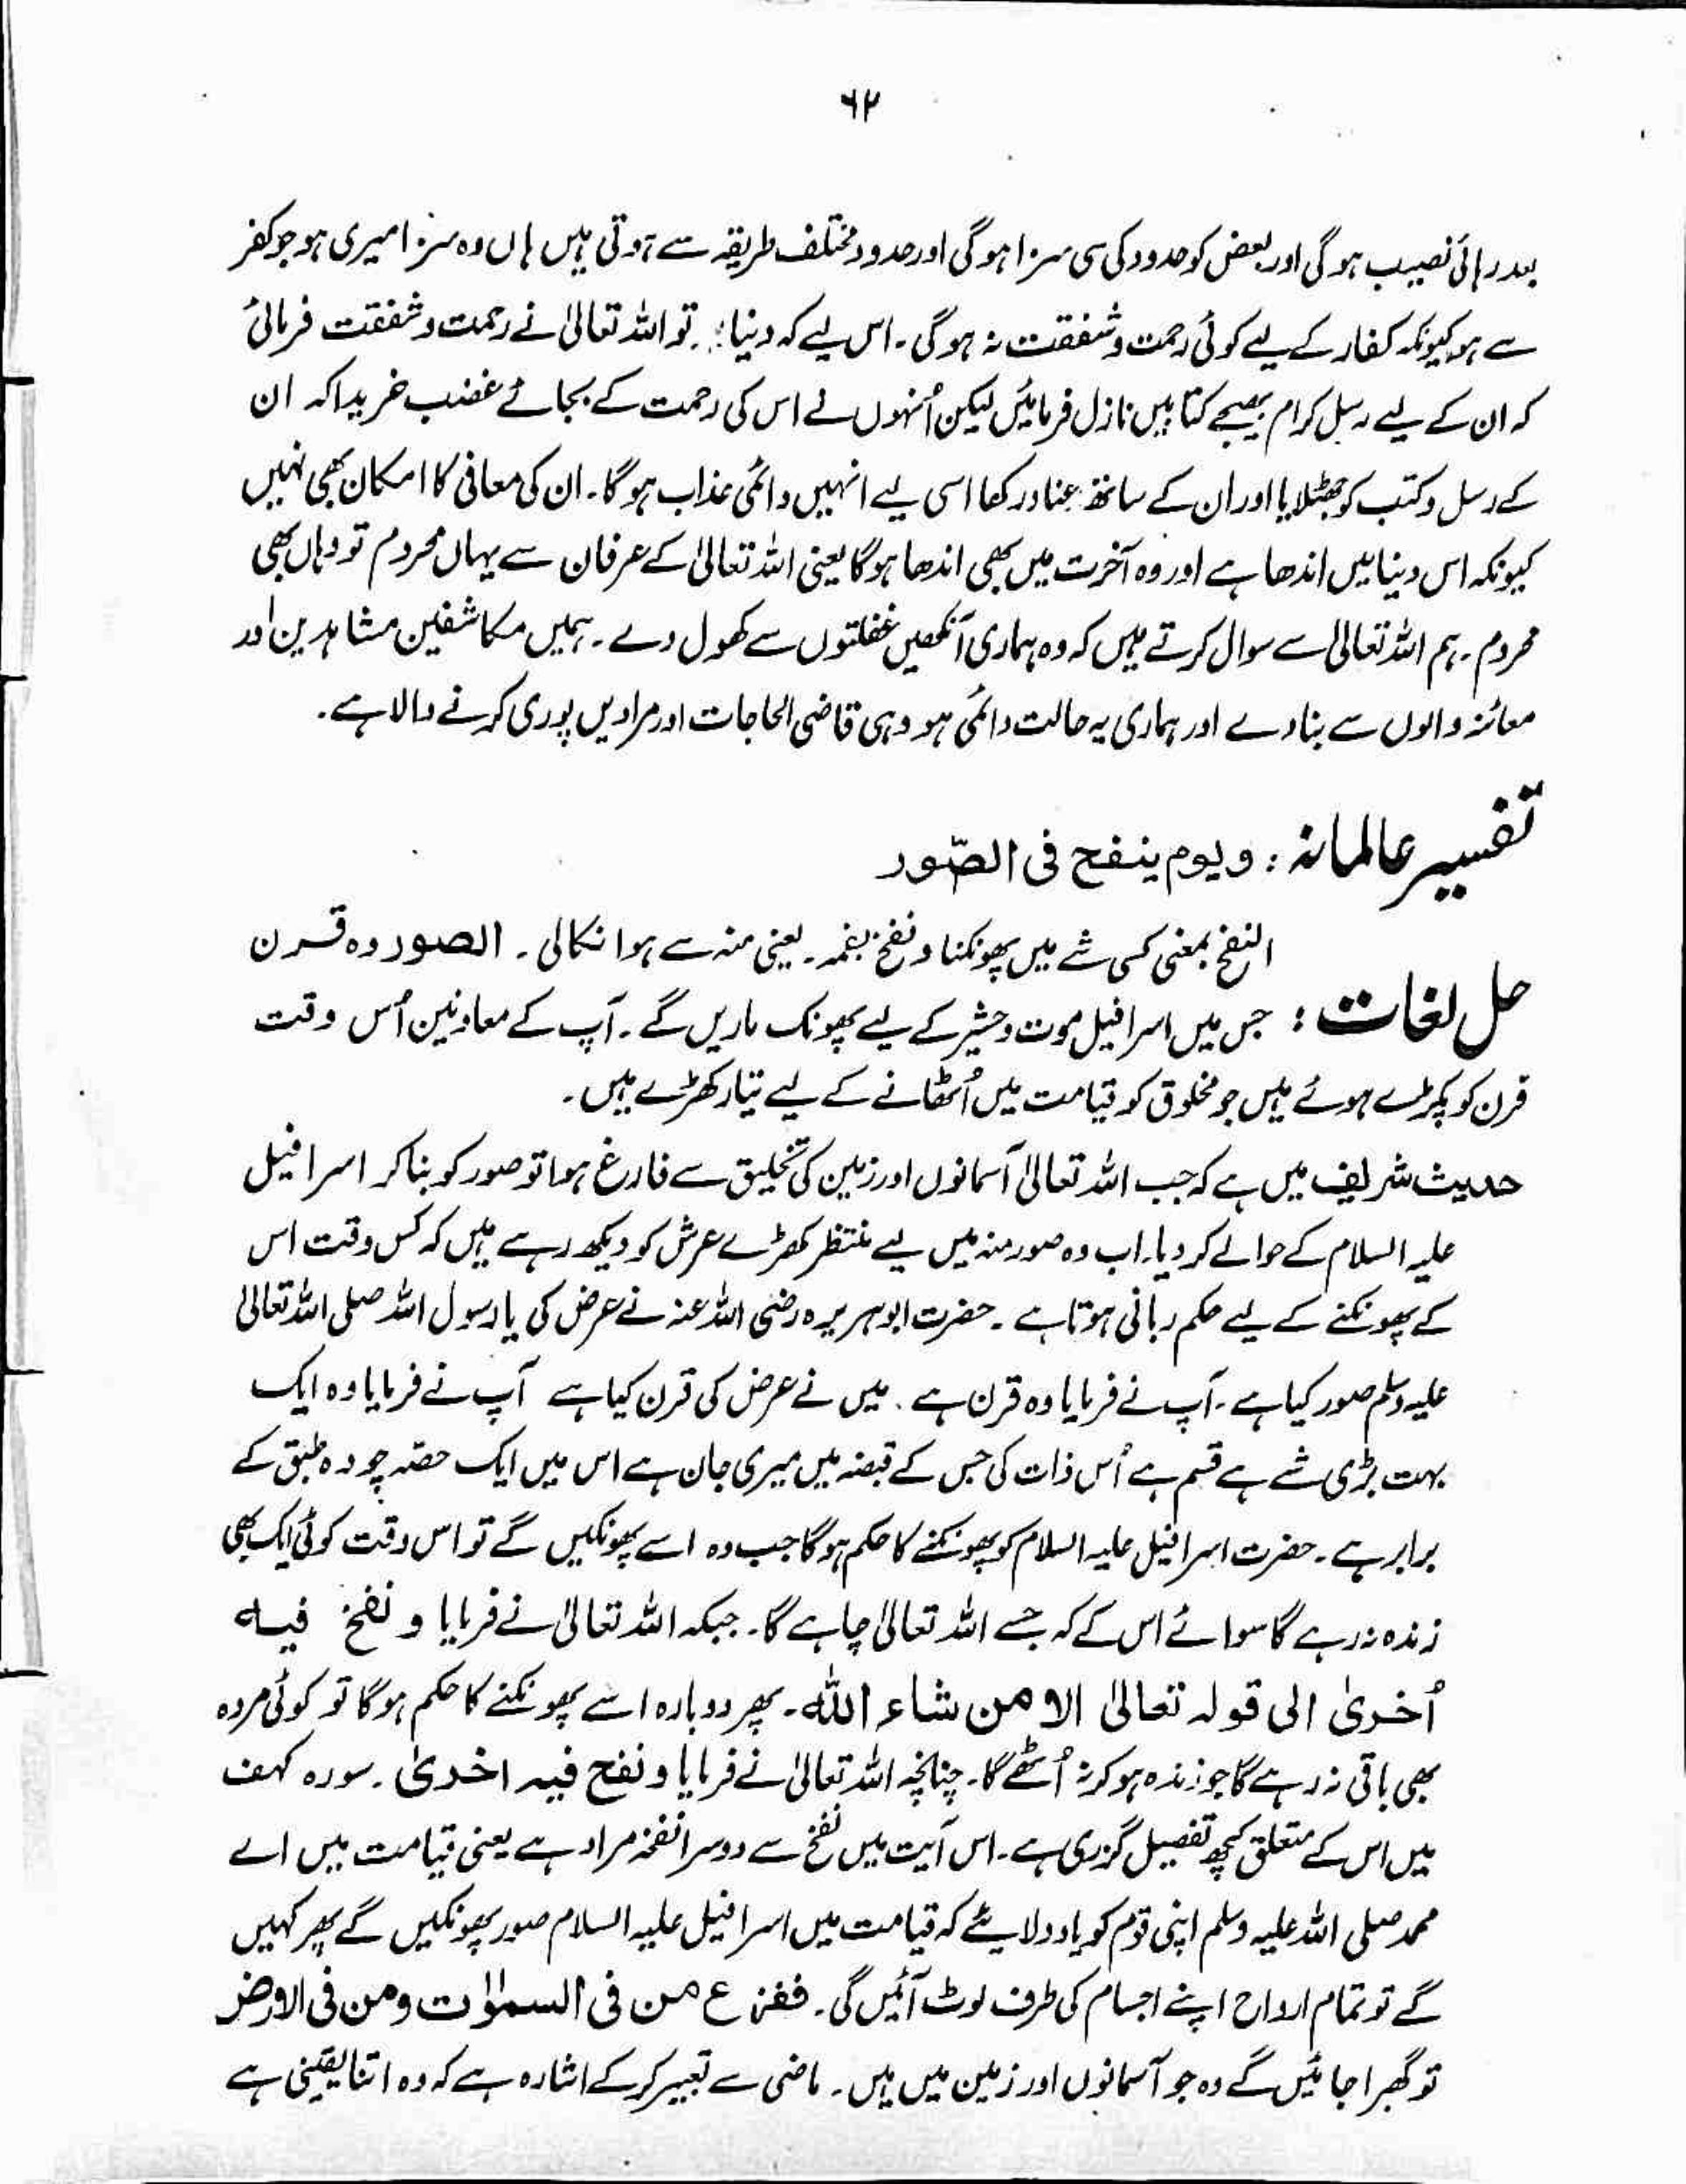 ۶۲
بعد رہائی نصیب ہوگی اور بعض کو حدود کی سی سزا ہوگی اور حدود مختلف طریقہ سے ہوتی ہیں ہاں وہ سزا میری ہو جو کفر
سے ہو کیونکہ کفار کے لیے کوئی رحمت و شفقت نہ ہوگی۔ اس لیے کہ دنیا تو اللہ تعالیٰ نے رحمت و شفقت فرمائی
کہ ان کے لیے رسل کرام بھیجے کتابیں نازل فرمائیں لیکن اُنہوں نے اس کی رحمت کے بجائے غضب خریدا کہ ان
کے رسل و کتب کو جھٹلایا اور ان کے ساتھ عناد رکھا اسی لیے انہیں دائمی عذاب ہوگا۔ ان کی معافی کا امکان بھی نہیں
کیونکہ اس دنیا میں اندھا ہے اور وہ آخرت میں بھی اندھا ہوگا یعنی اللہ تعالیٰ کے عرفان سے یہاں محروم تو وہاں بھی
محروم۔ ہم اللہ تعالیٰ سے سوال کرتے ہیں کہ وہ ہماری آنکھیں غفلتوں سے کھول دے۔ ہمیں مکاشفین مشاہدین اور
معائنہ والوں سے بنادے اور ہماری یہ حالت دائمی ہو وہی قاضی الحاجات اور مرادیں پوری کرنے والا ہے۔
تفسیر عالمانہ : و یوم ینفخ فی الصّور
النفخ بمعنی کسی شے میں پھونکنا و نفخ بفمہ۔ یعنی منہ سے ہوا نکالی۔ الصور وہ قرن
حل لغات : جس میں اسرافیل موت و حشر کے لیے پھونک ماریں گے۔ آپ کے معاونین اُس وقت
قرن کو پکڑے ہوئے ہیں جو مخلوق کو قیامت میں اُٹھانے کے لیے تیار کھڑے ہیں۔
حدیث شریف میں ہے کہ جب اللہ تعالیٰ آسمانوں اور زمین کی تخلیق سے فارغ ہوا تو صور کو بنا کر اسرافیل
علیہ السلام کے حوالے کر دیا۔ اب وہ صور منہ میں لیے منتظر کھڑے عرش کو دیکھ رہے ہیں کہ کس وقت اس
کے پھونکنے کے لیے حکم ربانی ہوتا ہے۔ حضرت ابوہریرہ رضی اللہ عنہ نے عرض کی یا رسول اللہ صلی اللہ تعالیٰ
علیہ وسلم صور کیا ہے۔ آپ نے فرمایا وہ قرن ہے۔ میں نے عرض کی قرن کیا ہے آپ نے فرمایا وہ ایک
بہت بڑی شے ہے قسم ہے اُس ذات کی جس کے قبضہ میں میری جان ہے اس میں ایک حصّہ چودہ طبق کے
برابر ہے۔ حضرت اسرافیل علیہ السلام کو پھونکنے کا حکم ہوگا جب وہ اسے پھونکیں گے تو اس وقت کوئی ایک بھی
زندہ نہ رہے گا سوائے اس کے کہ جسے اللہ تعالیٰ چاہے گا۔ جبکہ اللہ تعالیٰ نے فرمایا و نفخ فیہ
اُخریٰ الی قولہ تعالیٰ الا من شاء اللہ۔ پھر دوبارہ اسے پھونکنے کا حکم ہوگا تو کوئی مردہ
بھی باقی نہ رہے گا جو زندہ ہو کر نہ اُٹھے گا۔ چنانچہ اللہ تعالیٰ نے فرمایا و نفخ فیہ اخریٰ۔ سورہ کہف
میں اس کے متعلق کچھ تفصیل گزری ہے۔ اس آیت میں نفخ سے دوسرا نفخہ مراد ہے یعنی قیامت میں اے
محمد صلی اللہ علیہ وسلم اپنی قوم کو یاد دلایئے کہ قیامت میں اسرافیل علیہ السلام صور پھونکیں گے پھر کہیں
گے تو تمام ارواح اپنے اجسام کی طرف لوٹ آئیں گی۔ ففزع من فی السمٰوٰت ومن فی الارض
تو گھبرا جائیں گے وہ جو آسمانوں اور زمین میں ہیں۔ ماضی سے تعبیر کر کے اشارہ ہے کہ وہ اتنا یقینی ہے